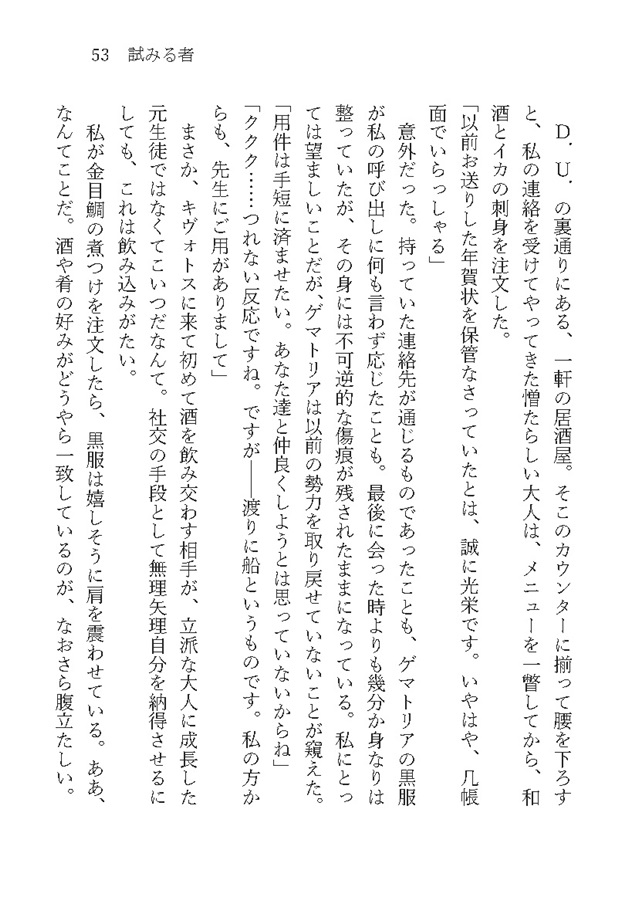 53 試みる者
D．U．の裏通りにある、一軒の居酒屋。そこのカウンターに揃って腰を下ろす
と、私の連絡を受けてやってきた憎たらしい大人は、メニューを一瞥してから、和
酒とイカの刺身を注文した。
「以前お送りした年賀状を保管なさっていたとは、誠に光栄です。いやはや、几帳
面でいらっしゃる」
意外だった。持っていた連絡先が通じるものであったことも、ゲマトリアの黒服
が私の呼び出しに何も言わず応じたことも。最後に会った時よりも幾分か身なりは
整っていたが、その身には不可逆的な傷痕が残されたままになっている。私にとっ
ては望ましいことだが、ゲマトリアは以前の勢力を取り戻せていないことが窺えた。
「用件は手短に済ませたい。あなた達と仲良くしようとは思っていないからね」
「ククク……つれない反応ですね。ですが――渡りに船というものです。私の方か
らも、先生にご用がありまして」
まさか、キヴォトスに来て初めて酒を飲み交わす相手が、立派な大人に成長した
元生徒ではなくてこいつだなんて。社交の手段として無理矢理自分を納得させるに
しても、これは飲み込みがたい。
私が金目鯛の煮つけを注文したら、黒服は嬉しそうに肩を震わせている。ああ、
なんてことだ。酒や肴の好みがどうやら一致しているのが、なおさら腹立たしい。